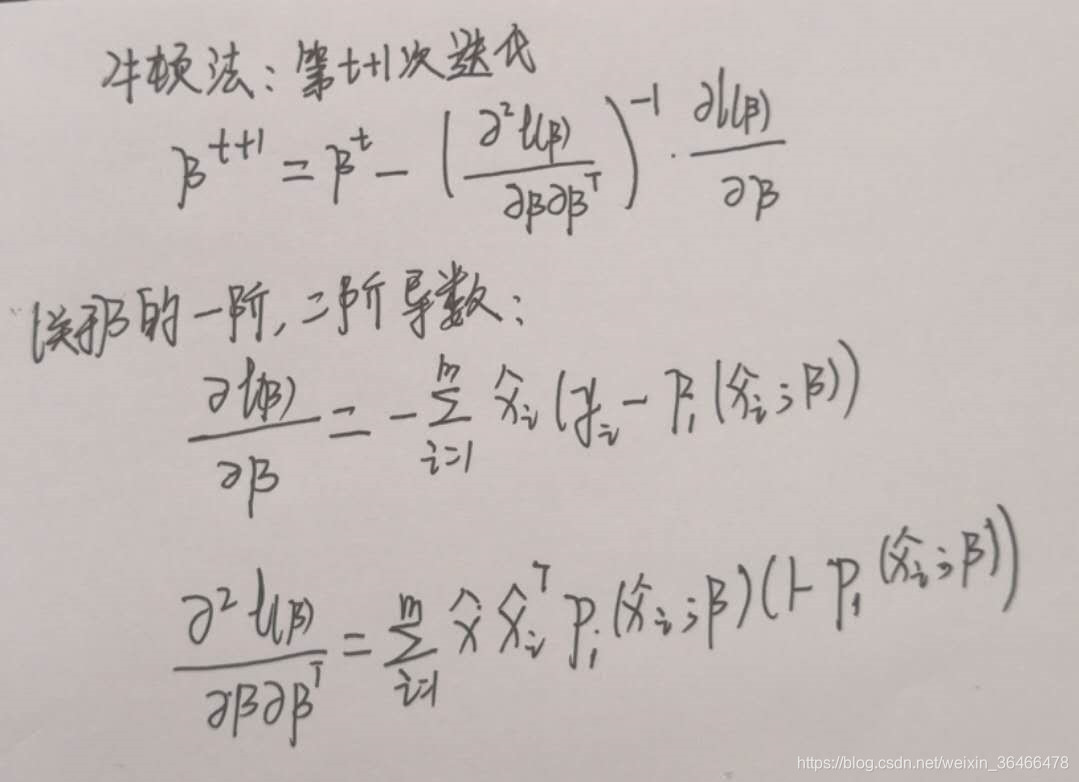 牛顿法：第t+1次迭代
β^{t+1} = β^t - (∂²l(β) / ∂β∂β^T)^{-1} · ∂l(β) / ∂β
l关于β的一阶，二阶导数：
∂l(β) / ∂β = - ∑_{i=1}^{m} x̂_i (y_i - p_1(x̂_i; β))
∂²l(β) / ∂β∂β^T = ∑_{i=1}^{m} x̂ x̂_i^T p_1(x̂_i; β)(1 - p_1(x̂_i; β))
https://blog.csdn.net/weixin_36466478